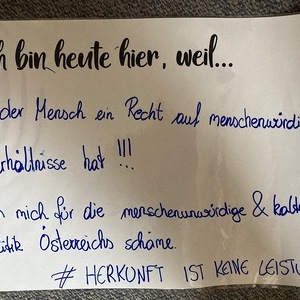 h bin heute hier, weil...
der Mensch ein Recht auf menschenwürdi
erhältnisse hat !!!
mich für die menschenunwürdige & kalte
itik Österreichs schäme.
# HERKUNFT IST KEINE LEISTU